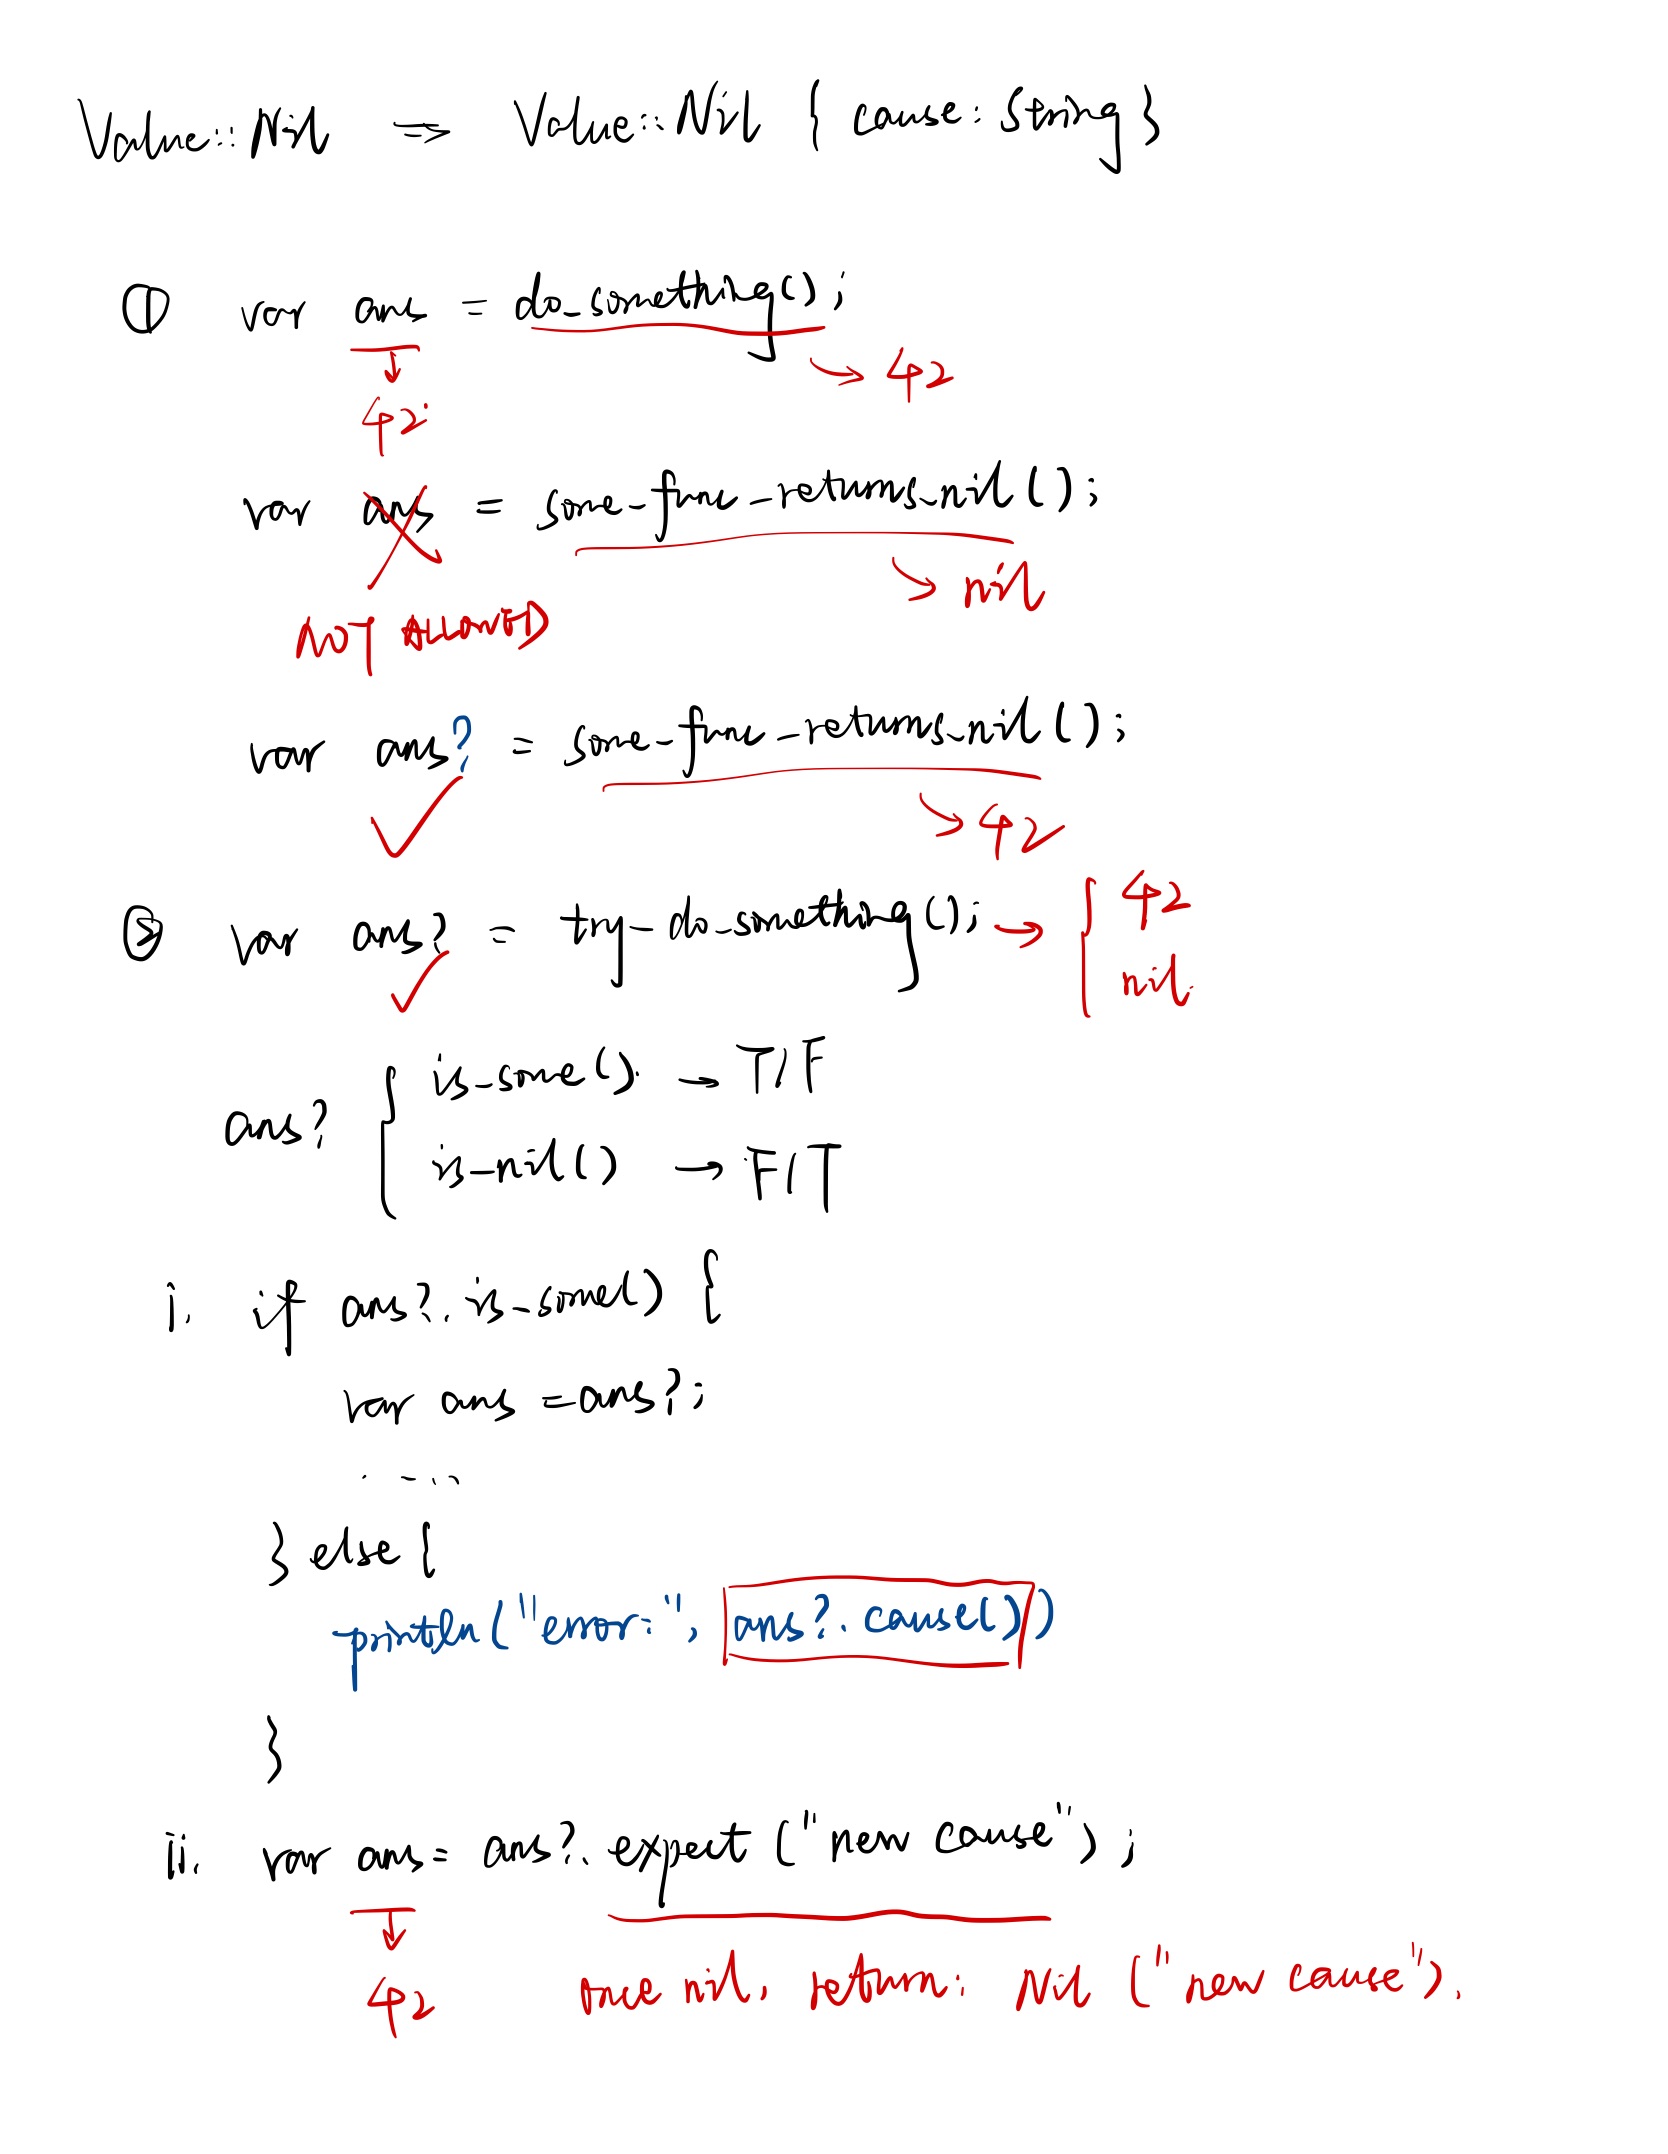 Value::Nil ⇒ Value::Nil { cause: String }
① var ans = do_something();
↓ → 42
42
var ans = some_func_returns_nil();
→ nil
NOT ALLOWED
var ans? = some_func_returns_nil();
✓ → 42
② var ans? = try_do_something(); → { 42
✓ nil
ans? { is_some() → T/F
is_nil() → F/T
i. if ans?.is_some() {
var ans = ans?;
.....
} else {
println("error:", ans?.cause())
}
ii. var ans = ans?.expect("new cause");
↓
42 once nil, return: Nil ("new cause").